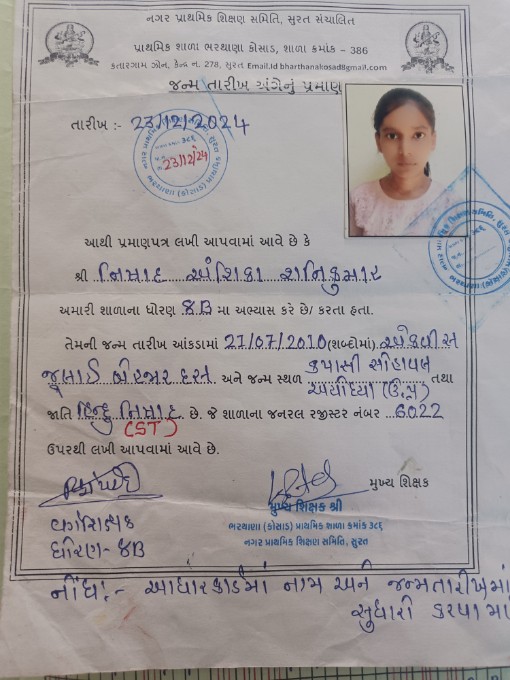 નગર પ્રાથમિક શિક્ષણ સમિતિ, સુરત સંચાલિત
પ્રાથમિક શાળા ભરથાણા કોસાડ, શાળા ક્રમાંક - 386
કતારગામ ઝોન, કેન્દ્ર નં. 278, સુરત Email.Id bharthanakosad8@gmail.com
જન્મ તારીખ અંગેનું પ્રમાણ
તારીખ :- 23/12/2024
23/12/24
આથી પ્રમાણપત્ર લખી આપવામાં આવે છે કે
શ્રી નિષાદ અંશિકા શનિકુમાર
અમારી શાળાના ધોરણ ૪B મા અભ્યાસ કરે છે/ કરતા હતા.
તેમની જન્મ તારીખ આંકડામાં 21/07/2010 (શબ્દોમાં) એકવીસ
જુલાઈ બે હજાર દસ અને જન્મ સ્થળ કપાસી સોહાવલ
અયોધ્યા (ઉ.પ્ર) તથા
જાતિ હિન્દુ નિષાદ છે. જે શાળાના જનરલ રજીસ્ટર નંબર 6022
(ST)
ઉપરથી લખી આપવામાં આવે છે.
મુખ્ય શિક્ષક
મુખ્ય શિક્ષક શ્રી
વર્ગશિક્ષક
ભરથાણા (કોસાડ) પ્રાથમિક શાળા ક્રમાંક ૩૮૬
ધોરણ-૪B
નગર પ્રાથમિક શિક્ષણ સમિતિ, સુરત
નોંધ:- આધારકાર્ડમાં નામ અને જન્મતારીખમાં
સુધારો કરવા માં